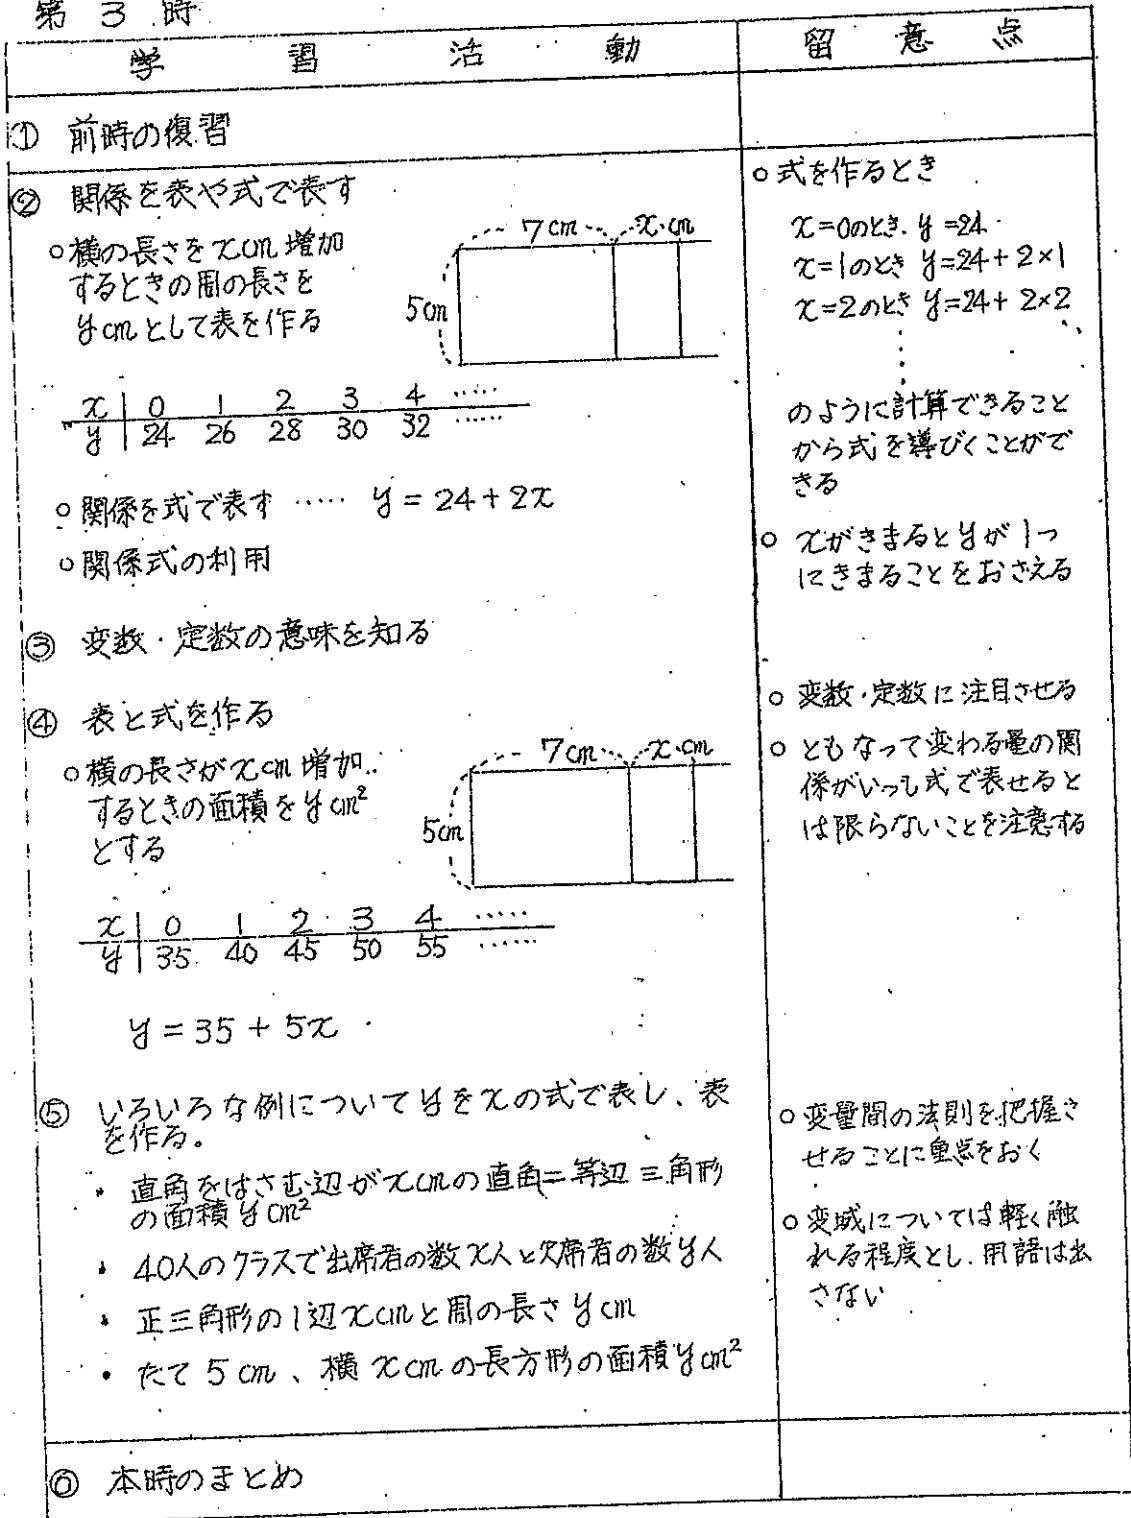 第 3 時
学 習 活 動
留 意 点
① 前時の復習
② 関係を表や式で表す
○横の長さをxcm増加
するときの周の長さを
ycmとして表を作る
7cm x cm
5cm
x 0 1 2 3 4 ……
y 24 26 28 30 32 ……
○関係を式で表す …… y = 24 + 2x
○関係式の利用
③ 変数・定数の意味を知る
④ 表と式を作る
○横の長さがxcm増加
するときの面積をycm²
とする
7cm x cm
5cm
x 0 1 2 3 4 ……
y 35 40 45 50 55 ……
y = 35 + 5x
⑤ いろいろな例についてyをxの式で表し、表
を作る。
・ 直角をはさむ辺がxcmの直角二等辺三角形
の面積ycm²
・ 40人のクラスで出席者の数x人と欠席者の数y人
・ 正三角形の1辺xcmと周の長さycm
・ たて5cm、横xcmの長方形の面積ycm²
⑥ 本時のまとめ
○式を作るとき
x=0のとき y=24
x=1のとき y=24+2×1
x=2のとき y=24+2×2
のように計算できること
から式を導びくことがで
きる
○ xがきまるとyが1つ
にきまることをおさえる
○ 変数・定数に注目させる
○ ともなって変わる量の関
係がいつも式で表せると
は限らないことを注意する
○変量間の法則を把握さ
せることに重点をおく
○変域については軽く触
れる程度とし、用語は出
さない